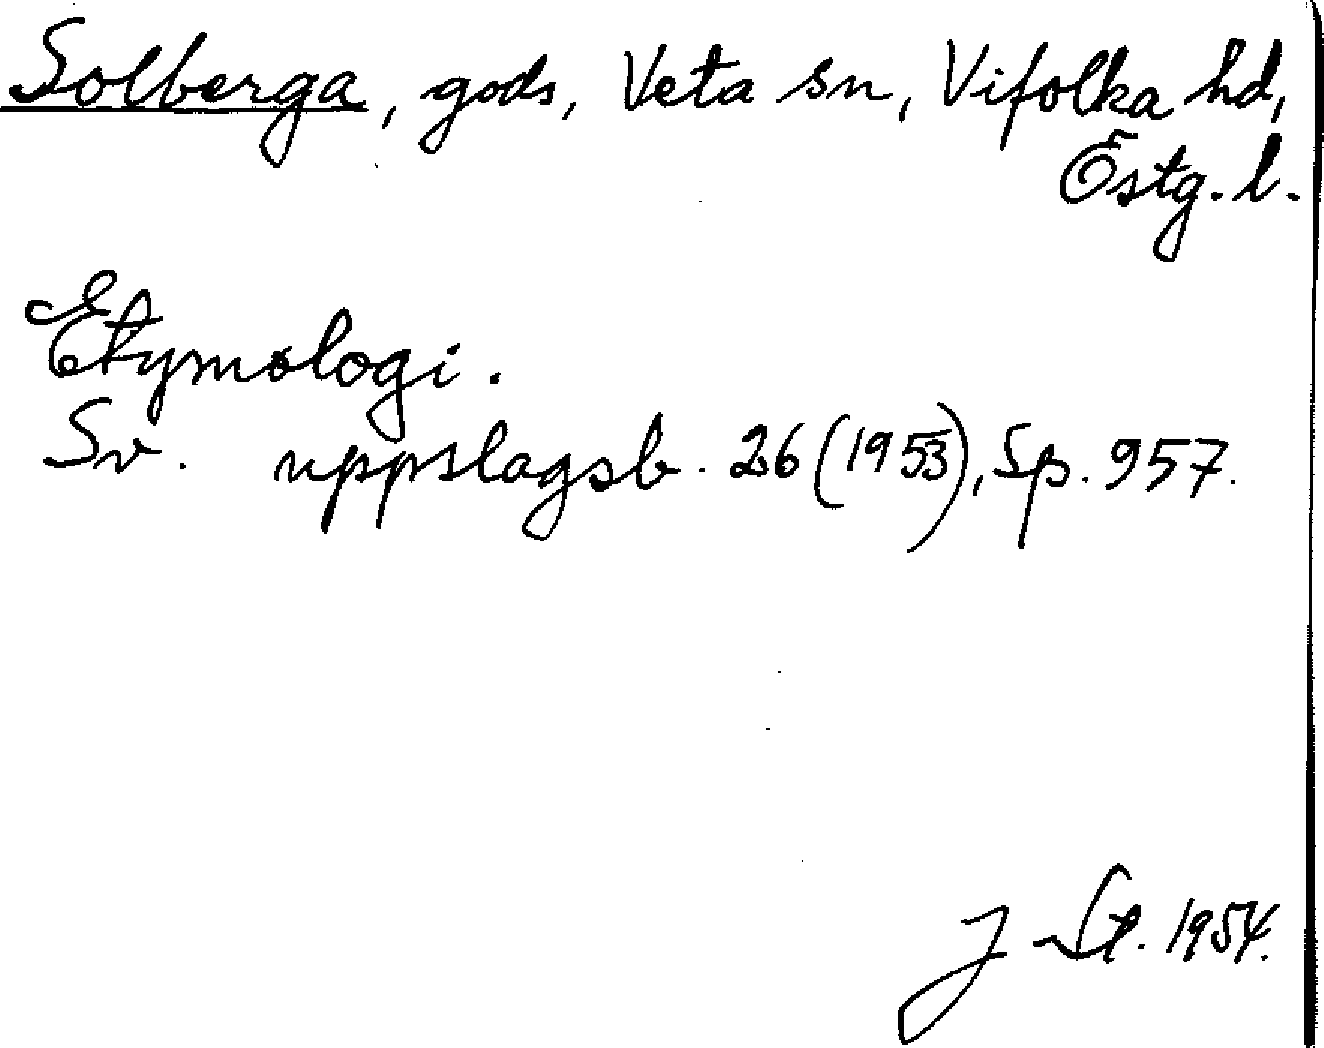 Solberga, gods, Veta sn, Vifolka hd,
Östg. l.
Etymologi.
Sv. uppslagsb. 26 (1953), Sp. 957.
J St. 1954.